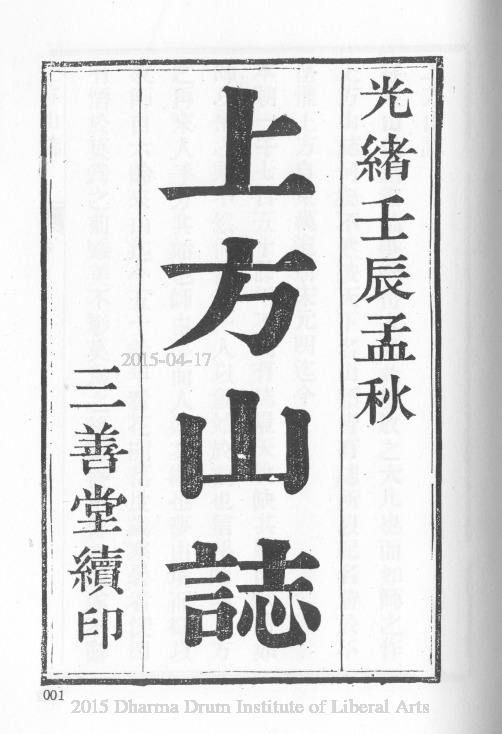 光緒壬辰孟秋
上方山誌
三善堂續印
2015-04-17
001
2015 Dharma Drum Institute of Liberal Arts